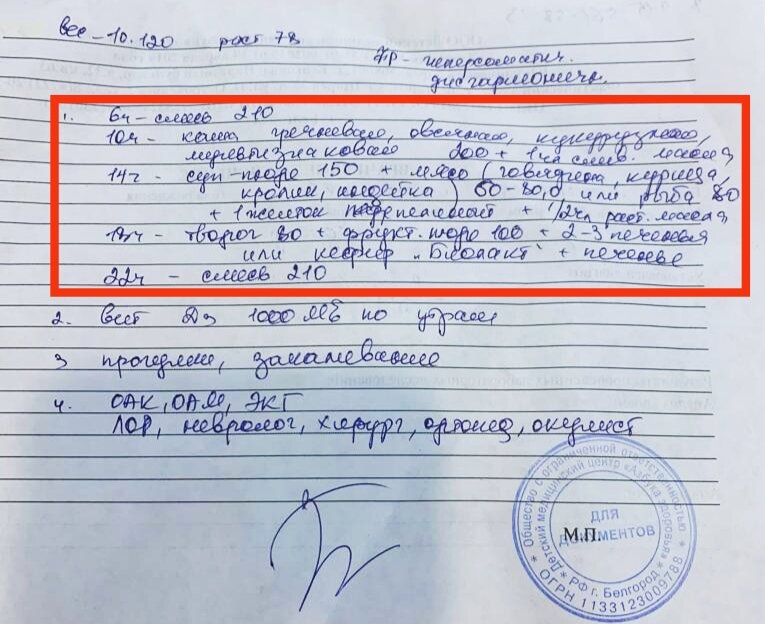 вес - 10.120 рост 78
Ф.р - гиперсоматич.
дисгармонич.
1. 6ч - смесь 210
10ч - каша гречневая, овсяная, кукурузная,
мультизлаковая 200 + 1чл слив. масла
14ч - суп-пюре 150 + мясо (говядина, курица,
кролик, индейка) 60-80,0 или рыба 80
+ 1 желток перепелиный + 1/2чл раст. масла
18ч - творог 80 + фрукт. пюре 100 + 2-3 печенья
или кефир „Биолакт" + печенье
22ч - смесь 210
2. Вит Д3 1000 МЕ по утрам
3 прогулки, закаливание
4. ОАК, ОАМ, ЭКГ
ЛОР, невролог, хирург, ортопед, окулист
М.П.
Общество с ограниченной ответственностью
Детский медицинский центр «Азбука здоровья»
ДЛЯ
ДОКУМЕНТОВ
РФ г. Белгород
ОГРН 1133123009788